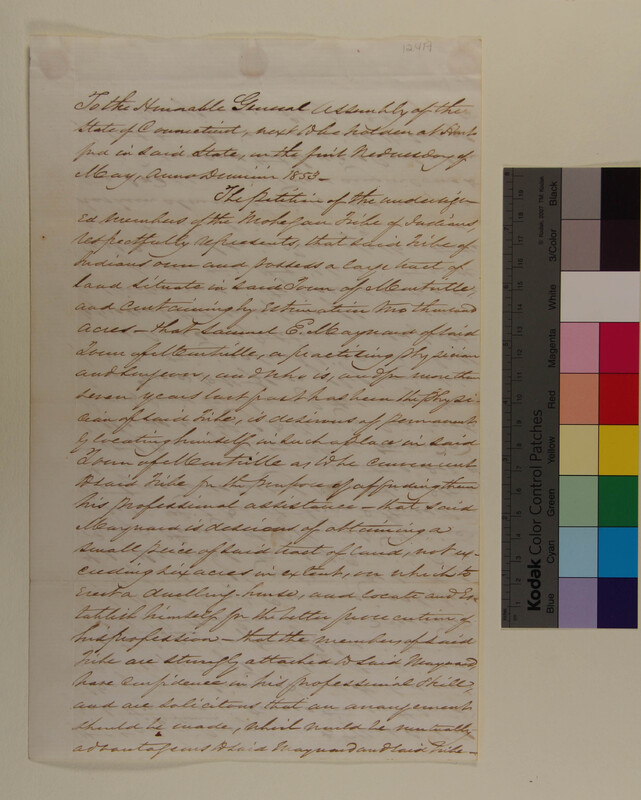 1241A
To the Honorable General Assembly of the
State of Connecticut, next to be holden at Hart-
ford in said State, on the first Wednesday of
May, Anno Domini 1853-
The Petition of the undersign-
ed members of the Mohegan Tribe of Indians
respectfully represents, that said Tribe of
Indians own and possess a large tract of
land situate in said Town of Montville,
and containing by estimation two thousand
acres - that Samuel E. Maynard of said
Town of Montville, a practising physician
and Surgeon, and who is, and for more than
seven years last past has been the Physi-
cian of said Tribe, is desirous of permanent-
ly locating himself in such a place in said
Town of Montville as to be convenient
to said Tribe for the purpose of affording them
his professional assistance - that said
Maynard is desirous of obtaining a
small peice of said tract of land, not ex-
ceeding six acres in extent, on which to
erect a dwelling-house, and locate and es-
tablish himself for the better prosecution of
his profession - that the members of said
Tribe are strongly attached to said Maynard,
have confidence in his professional skill,
and are solicitous that an arrangement
should be made, which would be mutually
advantageous to said Maynard and said Tribe-
Kodak Color Control Patches
© Kodak, 2007
Blue
Cyan
Green
Yellow
Red
Magenta
White
3/Color
Black